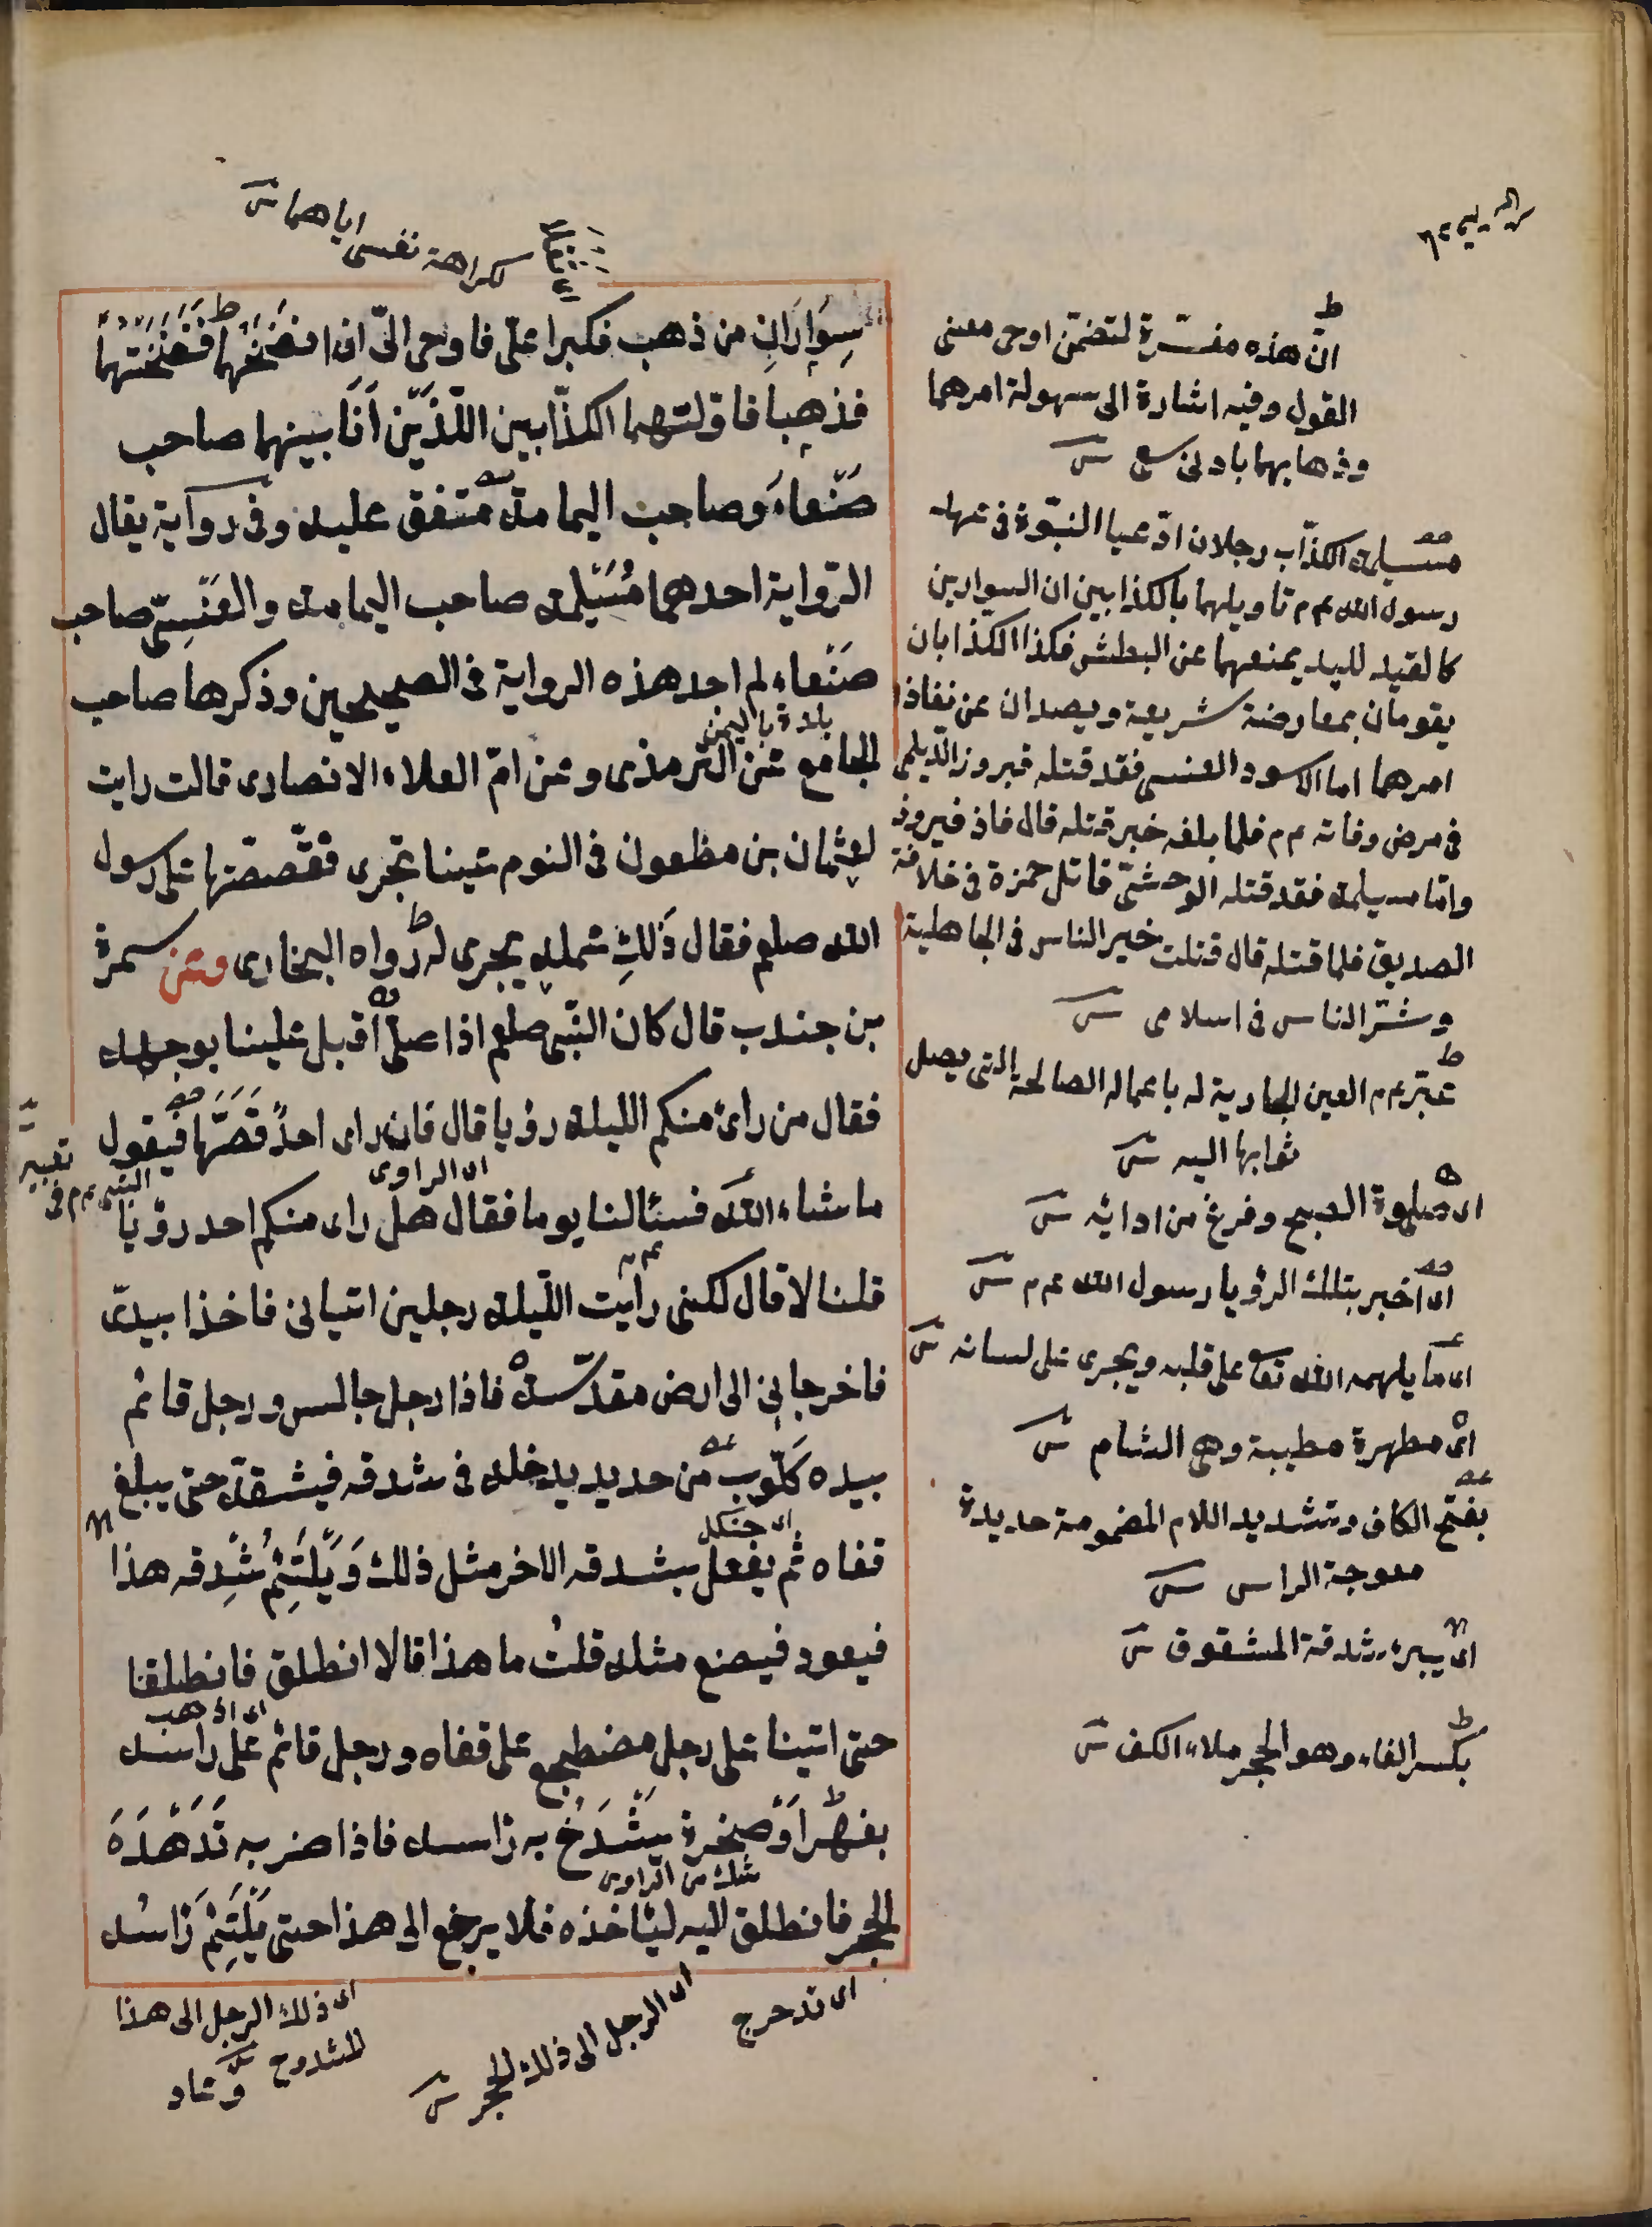 كراهة نفسى اياهما ش
سِوَارَانِ من ذهب فكبرا علىّ فاوحى الىّ ان انفخهما فَنَفَخْتُهما
فذهبا فاوّلتهما الكذّابين اللّذَيْن اَنَا بينهما صاحب
صَنْعاءَ وصاحب اليمامة متفق عليه وفى رواية يقال
الرّواية احدهما مُسَيْلمة صاحب اليمامة والعَنْسِىّ صاحب
صَنْعاء لم اجد هذه الرواية فى الصحيحين وذكرها صاحب
بلدة باليمن
الجامع عن الترمذى وعن امّ العلاء الانصارى قالت رايت
لعثمان بن مظعون فى النوم عينا تجرى فقصصتها على رسول
الله صلعم فقال ذَلكِ عمله يجرى له رواه البخارى وعن سمرة
بن جندب قال كان النّبى صلعم اذا صلّى اقبل علينا بوجهه
فقال من راى منكم الليلة رؤيا قال فان راى احدٌ قَصَّها فيقول
اى الراوى
ما شاء الله فسئالنا يوما فقال هل راى منكم احد رؤيا
تعبير
النبى عم فى
قلنا لا قال لكنى رأيت اللّيلة رجلين اتيانى فاخذا بيدىّ
فاخرجانى الى ارض مقدّسة فاذا رجل جالس ورجل قائم
بيده كَلّوب من حديد يدخله فى شدقه فيشقه حتى يبلغ
اى جنكل
قفاه ثم يفعل بشدقه الاخر مثل ذلك وَيَلْتَئِمُ شِدقه هذا
فيعود فيصنع مثله قلتُ ما هذا قالا انطلق فانطلقنا
اى اذهب
حتى اتينا على رجل مضطجع على قفاه ورجل قائم على راسه
بفهْر اَوْ صخرة يَشْدَخُ به راسه فاذا ضربه تَدَهْدَهَ
شك من الراوى
الحجر فانطلق اليه ليئاخذه فلا يرجع الى هذا حتى يَلْتَئِمَ رَاسُه
اى تدحرج
اى الرجل الى ذلك الحجر ش
اى ذلك الرجل الى هذا
المشدوخ ش
وعاد
انّ هذه مفسّرة لتضمّن اوحى معنى
القول وفيه اشارة الى سهولة امرهما
وذهابهما بادنى سعى ش
مسيلمة الكذّاب رجلان ادّعيا النبّوة فى عهد
رسول الله عم م تاويلهما بالكذابين ان السوارين
كالقيد لليد يمنعهما عن البطش فكذا الكذابان
يقومان بمعارضة شريعة ويصدان عن نفاذ
امرهما اما الاسود العنسى فقد قتله فيروز الديلمى
فى مرض وفاته عم م فلما بلغه خبر قتله قال فاذ فيروز
وامّا مسيلمة فقد قتله الوحشىّ قاتل حمزة فى خلافة
الصديق فلما قتله قال قتلت خير الناس فى الجاهلية
وشرّ الناس فى اسلامى ش
عبّر عم م العين الجارية له باعماله الصالحة التى يصل
ثوابها اليه ش
اى صلوة الصبح وفرغ من ادائه ش
اى اخبر بتلك الرؤيا رسول الله عم م ش
اى ما يلهمه الله تعا على قلبه ويجرى على لسانه ش
اى مطهرة مطيبة وهى الشام ش
بفتح الكاف وتشديد اللام المضمومة حديدة
معوجة الراس ش
اى يبرء شدقة المشقوق ش
بكسر الفاء وهو الحجر ملاء الكف ش